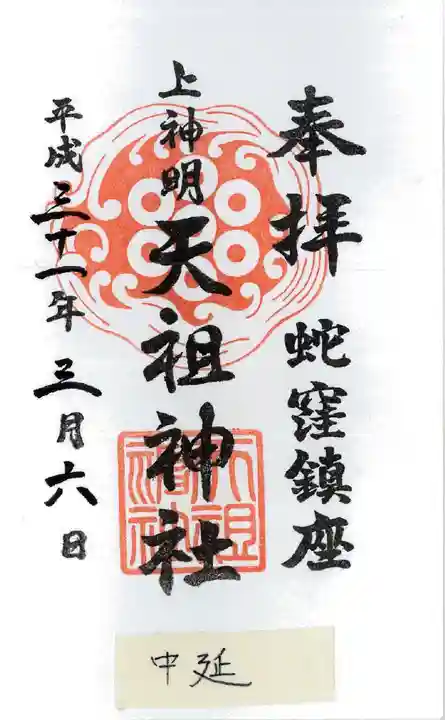 奉拝
蛇窪鎮座
上神明
天祖神社
天祖
神社
平成三十一年三月六日
中延